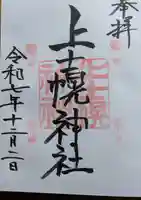 奉拝
上士幌神社
令和七年十二月二日